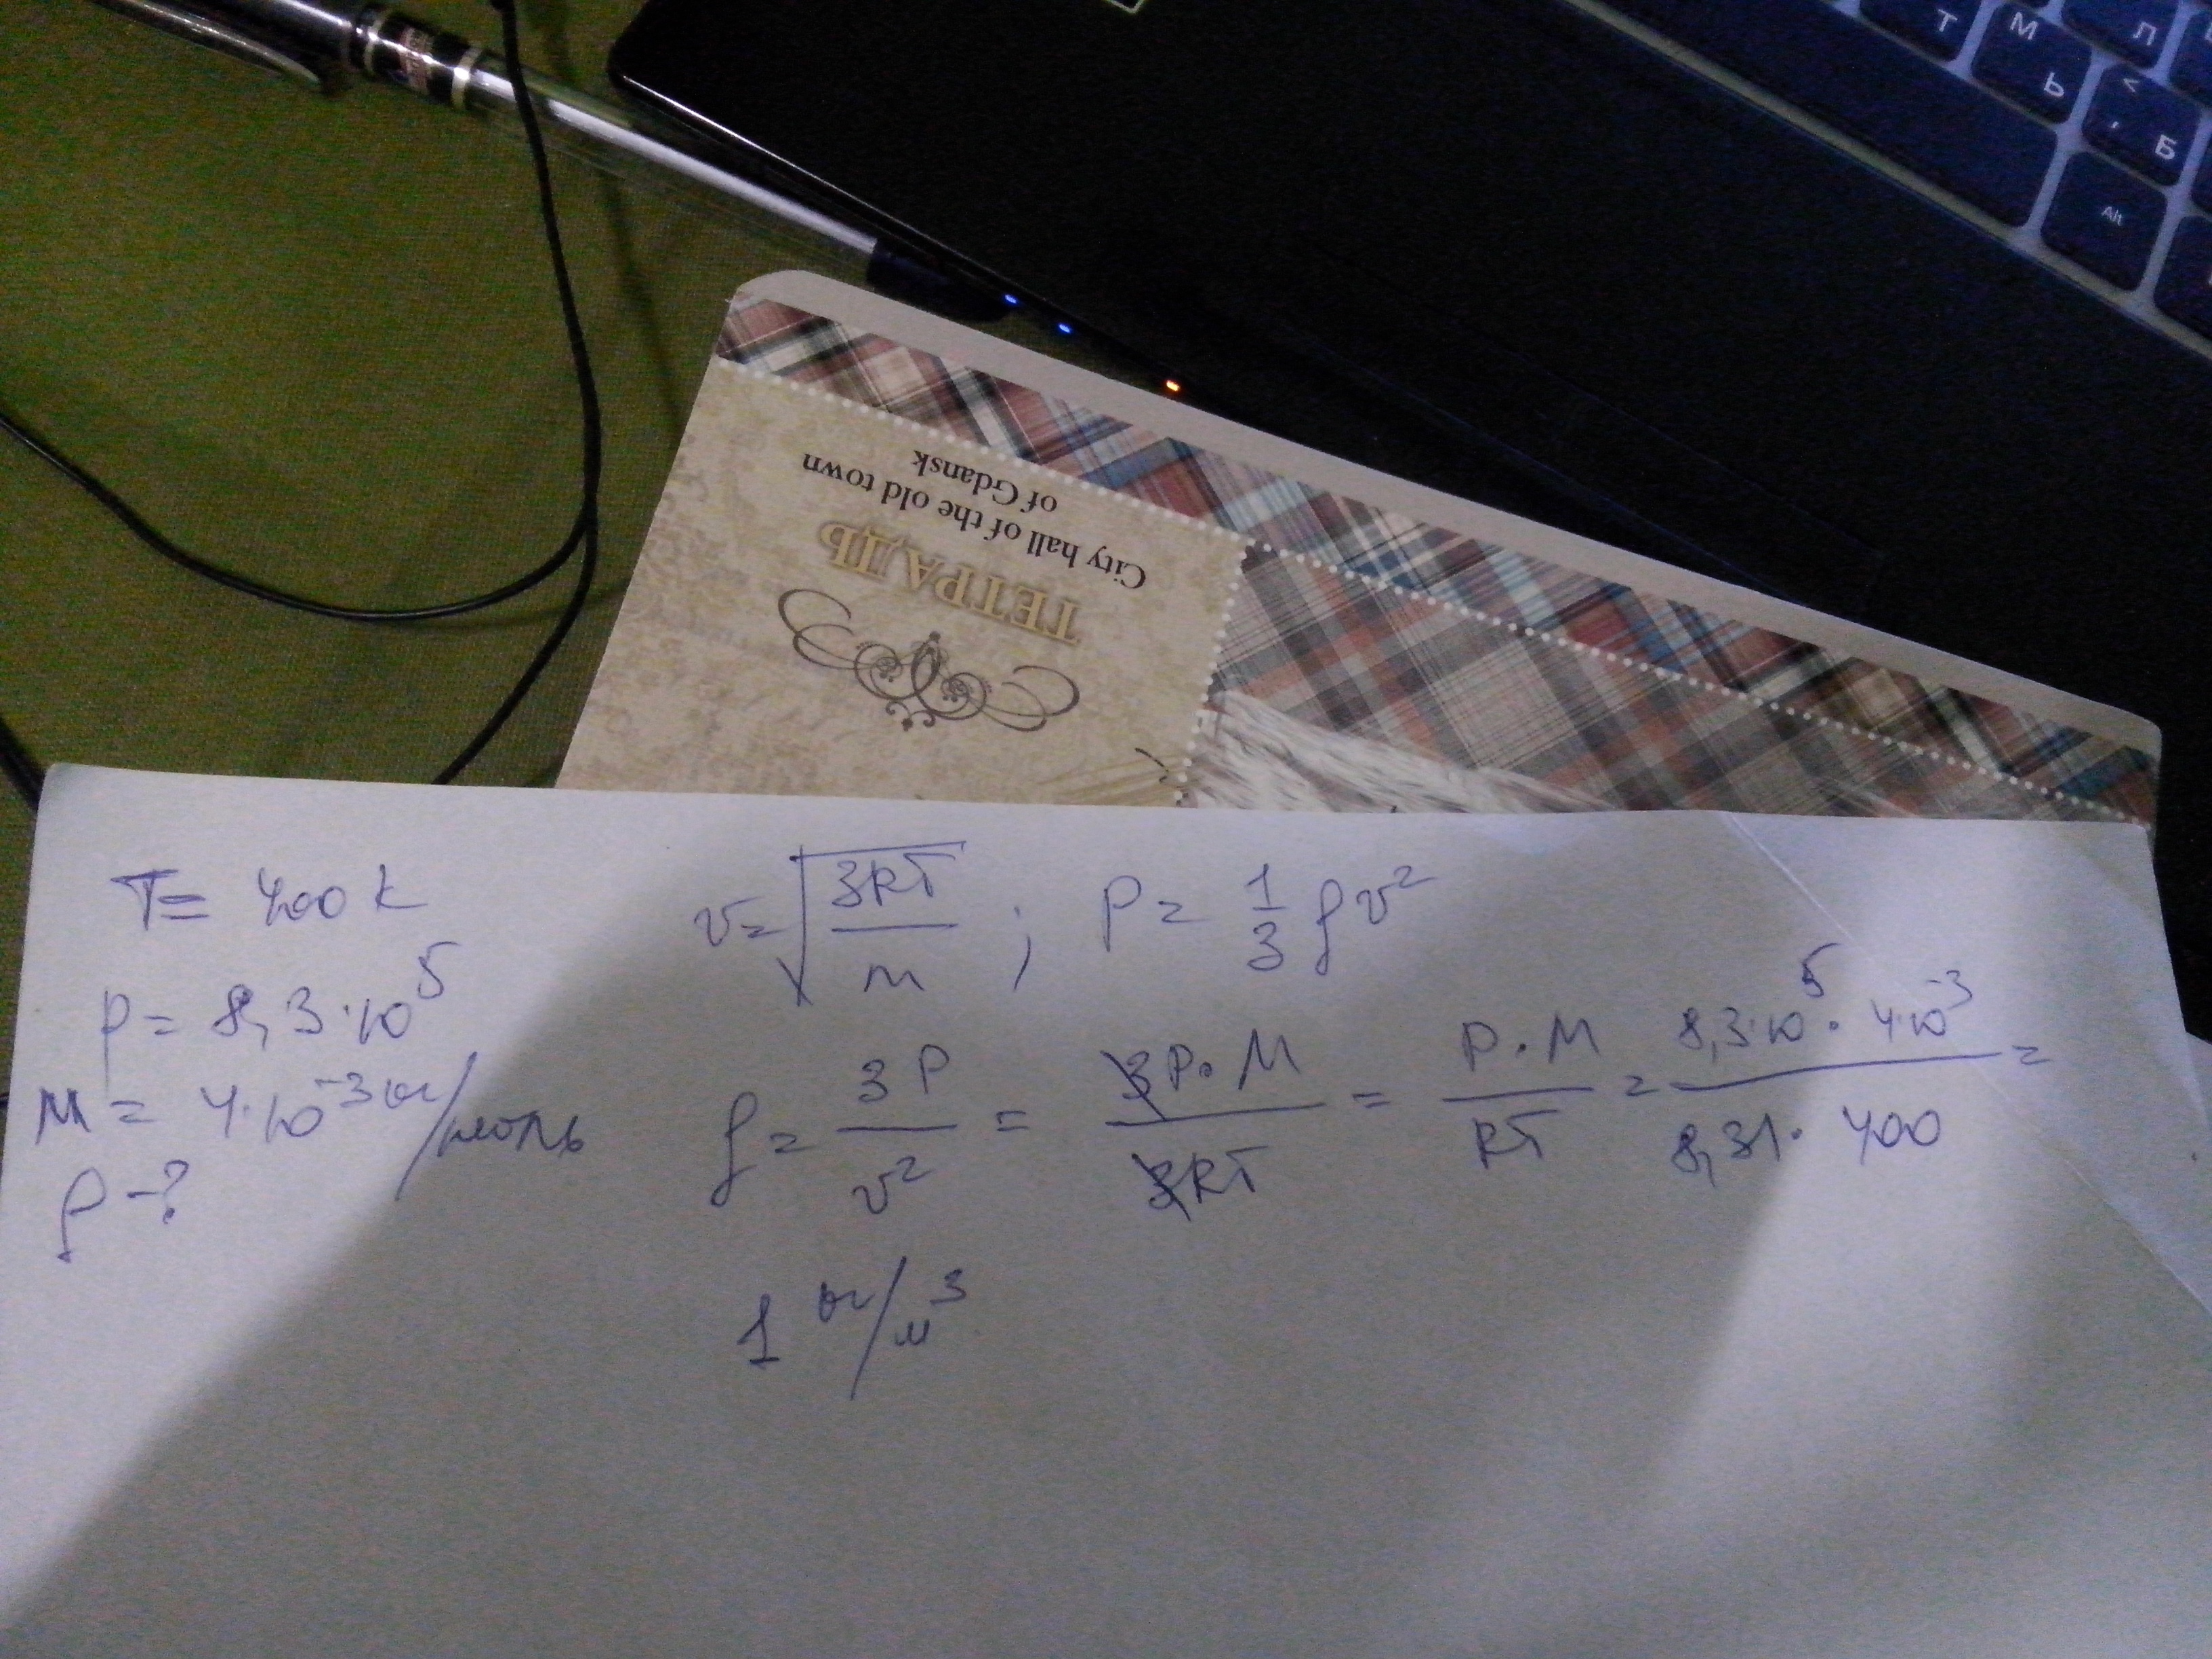 Т
М
Ь
Л
<
, Б
Alt
City hall of the old town
of Gdansk
ТЕТРАДЬ
T = 400 K
P = 8,3·10⁵
M = 4·10⁻³ кг/моль
ρ - ?
v = √(3RT/M) ; P = 1/3 ρv²
ρ = 3P/v² = 3P·M/3RT = P·M/RT = 8,3·10⁵·4·10⁻³/8,31·400 =
1 кг/м³